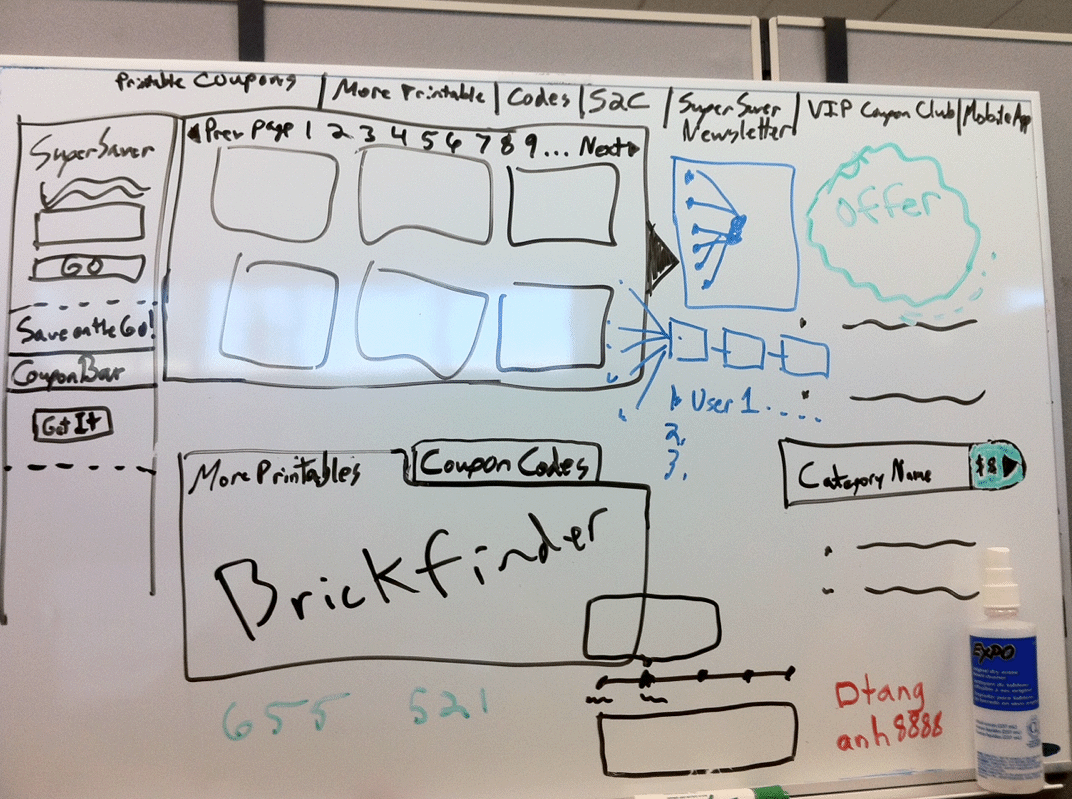 Printable Coupons | More Printable | Codes | S2C | Super Saver Newsletter | VIP Coupon Club | Mobile App
Super Saver
GO
Save on the Go!
Coupon Bar
Get It
◀ Prev Page 1 2 3 4 5 6 7 8 9... Next ▶
Offer
User 1 .....
2.
3.
More Printables
Coupon Codes
Brickfinder
Category Name
655 521
Dtang
anh8888
EXPO